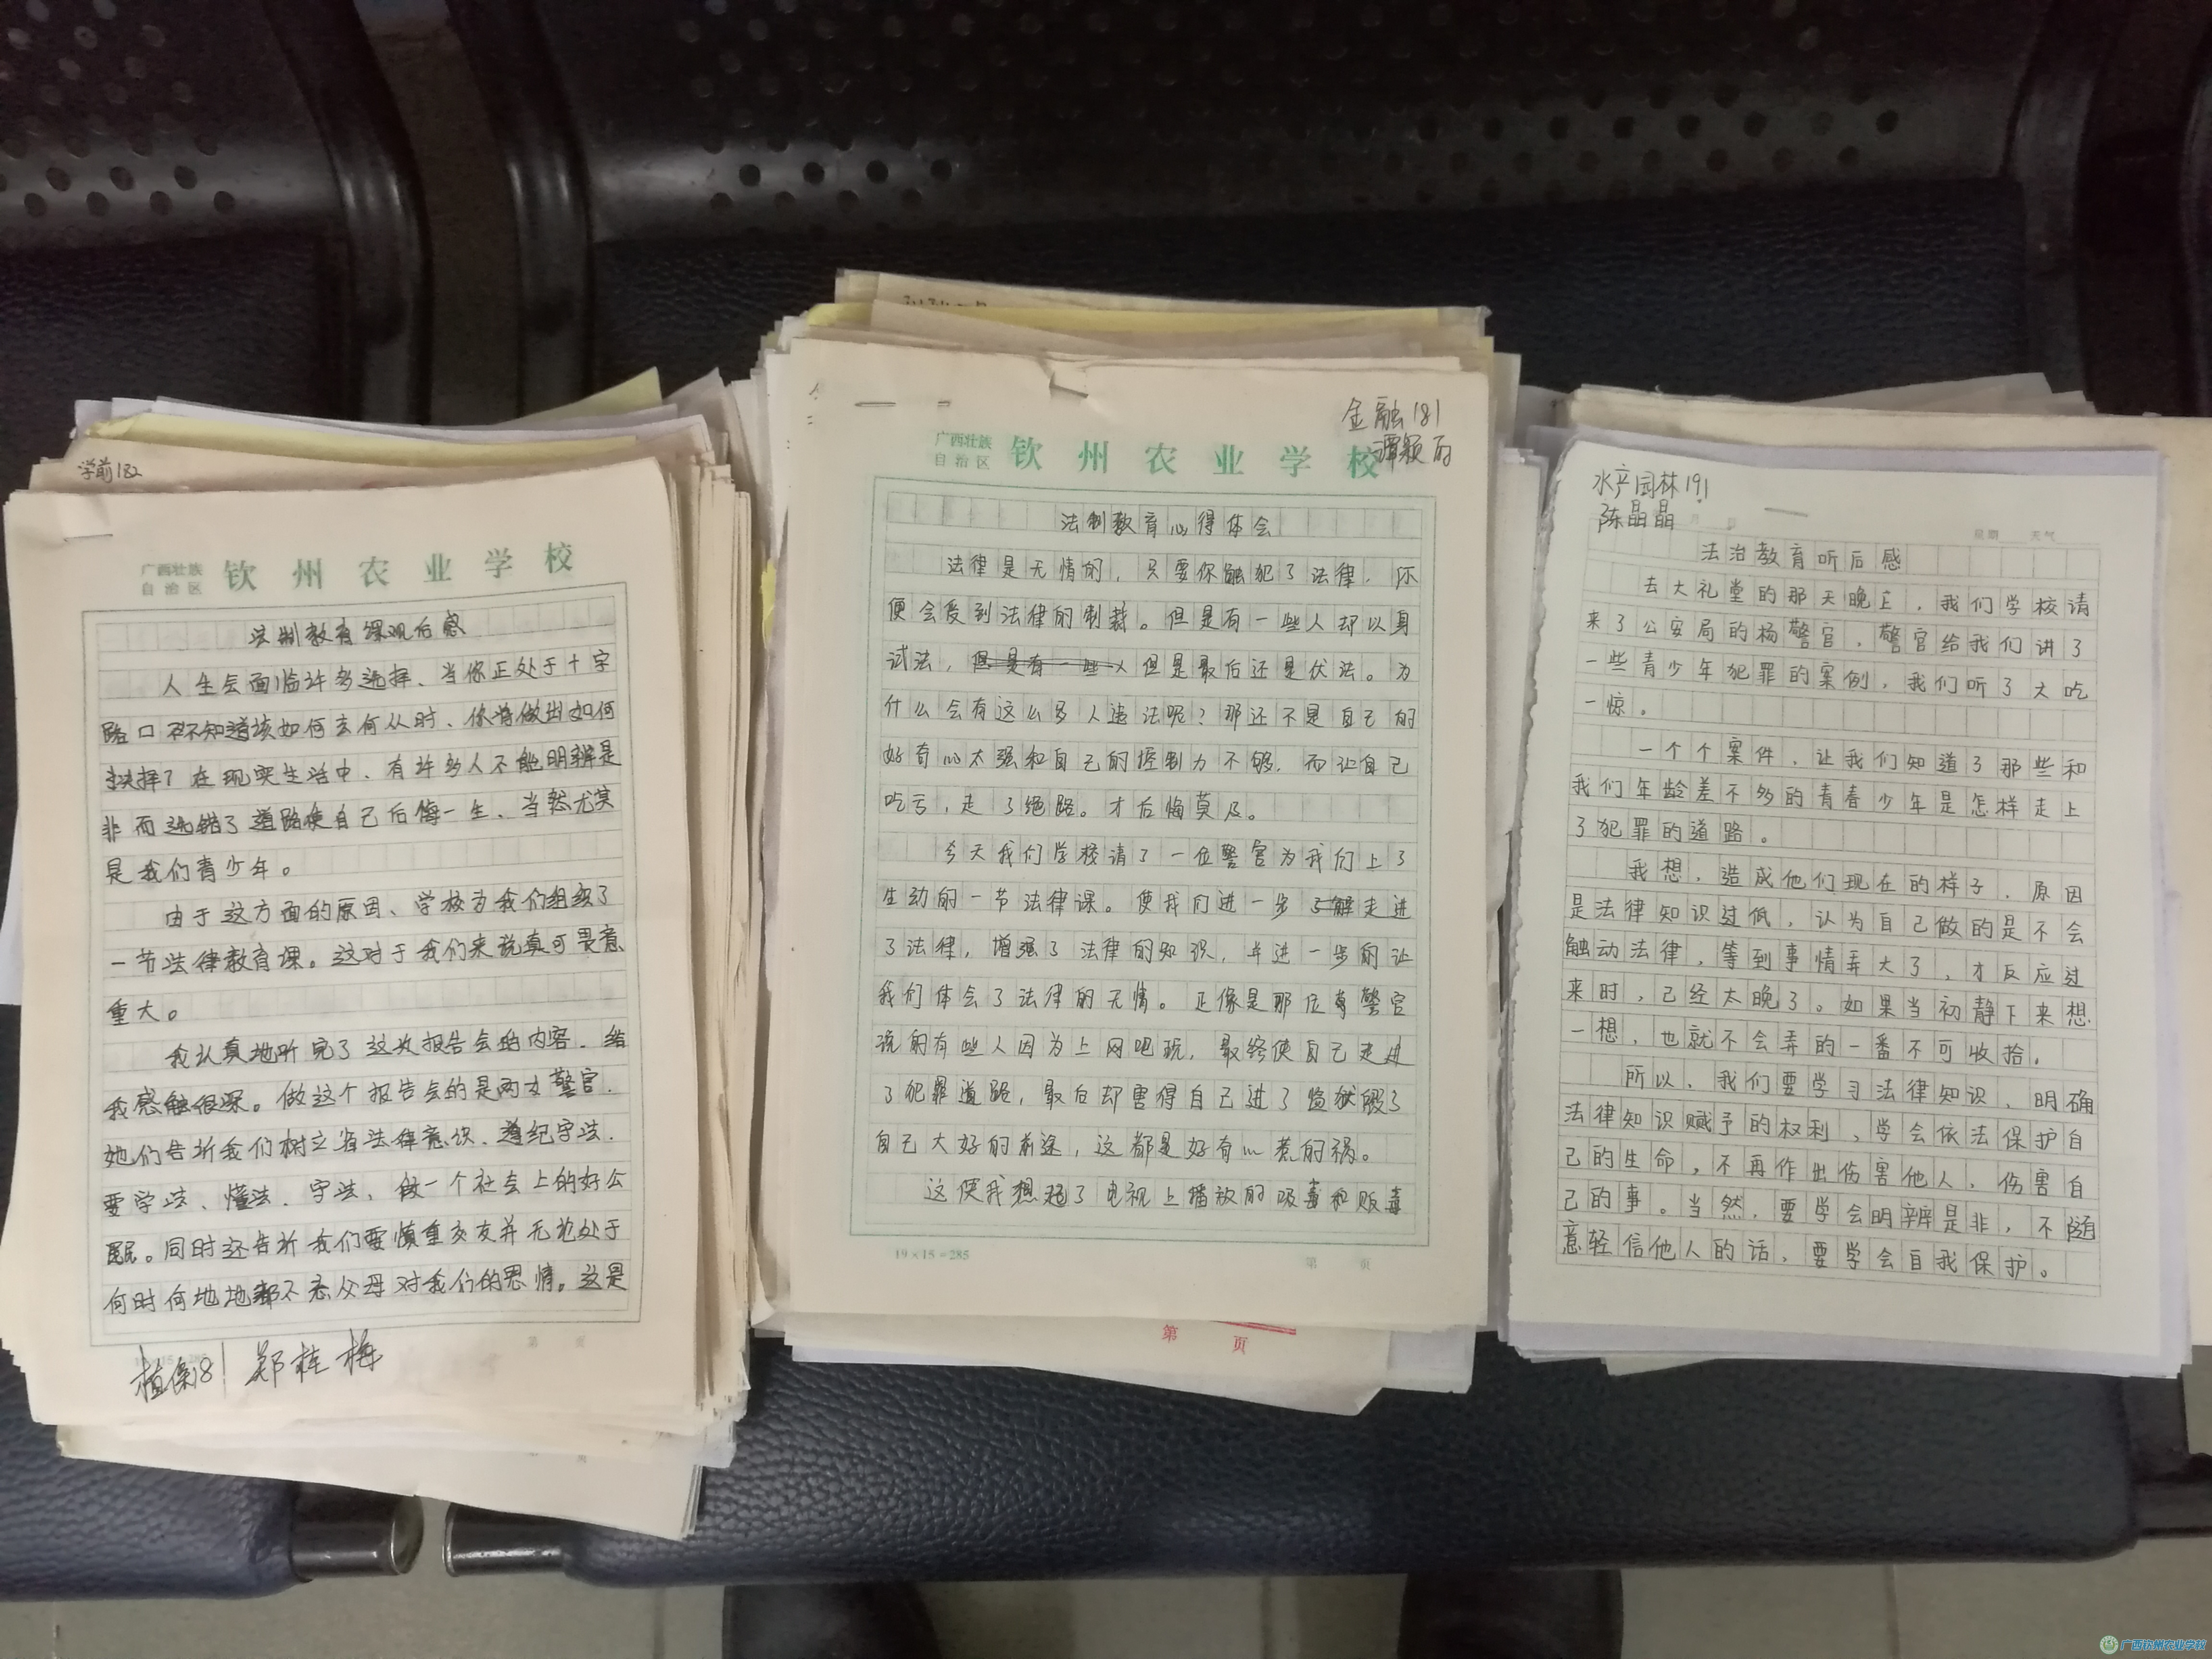 学前182
广西壮族
自治区
钦州农业学校
法制教育课观后感
人生会面临许多选择、当你正处于十字
路口不知道该如何去何从时、你将做出如何
抉择？在现实生活中、有许多人不能明辨是
非而选错了道路使自己后悔一生、当然尤其
是我们青少年。
由于这方面的原因、学校为我们组织了
一节法律教育课。这对于我们来说真可畏意
重大。
我认真地听完了这次报告会的内容、给
我感触很深。做这个报告会的是两女警官、
她们告诉我们树立省法律意识、遵纪守法、
要学法、懂法、守法、做一个社会上的好公
民。同时还告诉我们要慎重交友并无论处于
何时何地地都不忘父母对我们的恩情。这是
第 页
郑桂梅
金融181
谭颖
广西壮族
自治区
钦州农业学校
法制教育心得体会
法律是无情的，只要你触犯了法律，你
便会受到法律的制裁。但是有一些人却以身
试法，但是有一些人但是最后还是伏法。为
什么会有这么多人违法呢？那还不是自己的
好奇心太强和自己的控制力不够，而让自己
吃亏，走了绝路。才后悔莫及。
今天我们学校请了一位警官为我们上了
生动的一节法律课。使我们进一步了解走进
了法律，增强了法律的知识，并进一步的让
我们体会了法律的无情。正像是那位警官
说的有些人因为上网吧玩，最终使自己走进
了犯罪道路，最后却害得自己进了监狱毁了
自己大好的前途，这都是好奇心惹的祸。
这使我想起了电视上播放的吸毒和贩毒
19×15=285
第 页
第 页
水产园林191
陈晶晶
星期 天气
法治教育听后感
去大礼堂的那天晚上，我们学校请
来了公安局的杨警官，警官给我们讲了
一些青少年犯罪的案例，我们听了大吃
一惊。
一个个案件，让我们知道了那些和
我们年龄差不多的青春少年是怎样走上
了犯罪的道路。
我想，造成他们现在的样子，原因
是法律知识过低，认为自己做的是不会
触动法律，等到事情弄大了，才反应过
来时，已经太晚了。如果当初静下来想
一想，也就不会弄的一番不可收拾。
所以，我们要学习法律知识、明确
法律知识赋予的权利，学会依法保护自
己的生命，不再作出伤害他人，伤害自
己的事。当然，要学会明辨是非，不随
意轻信他人的话，要学会自我保护。
广西钦州农业学校